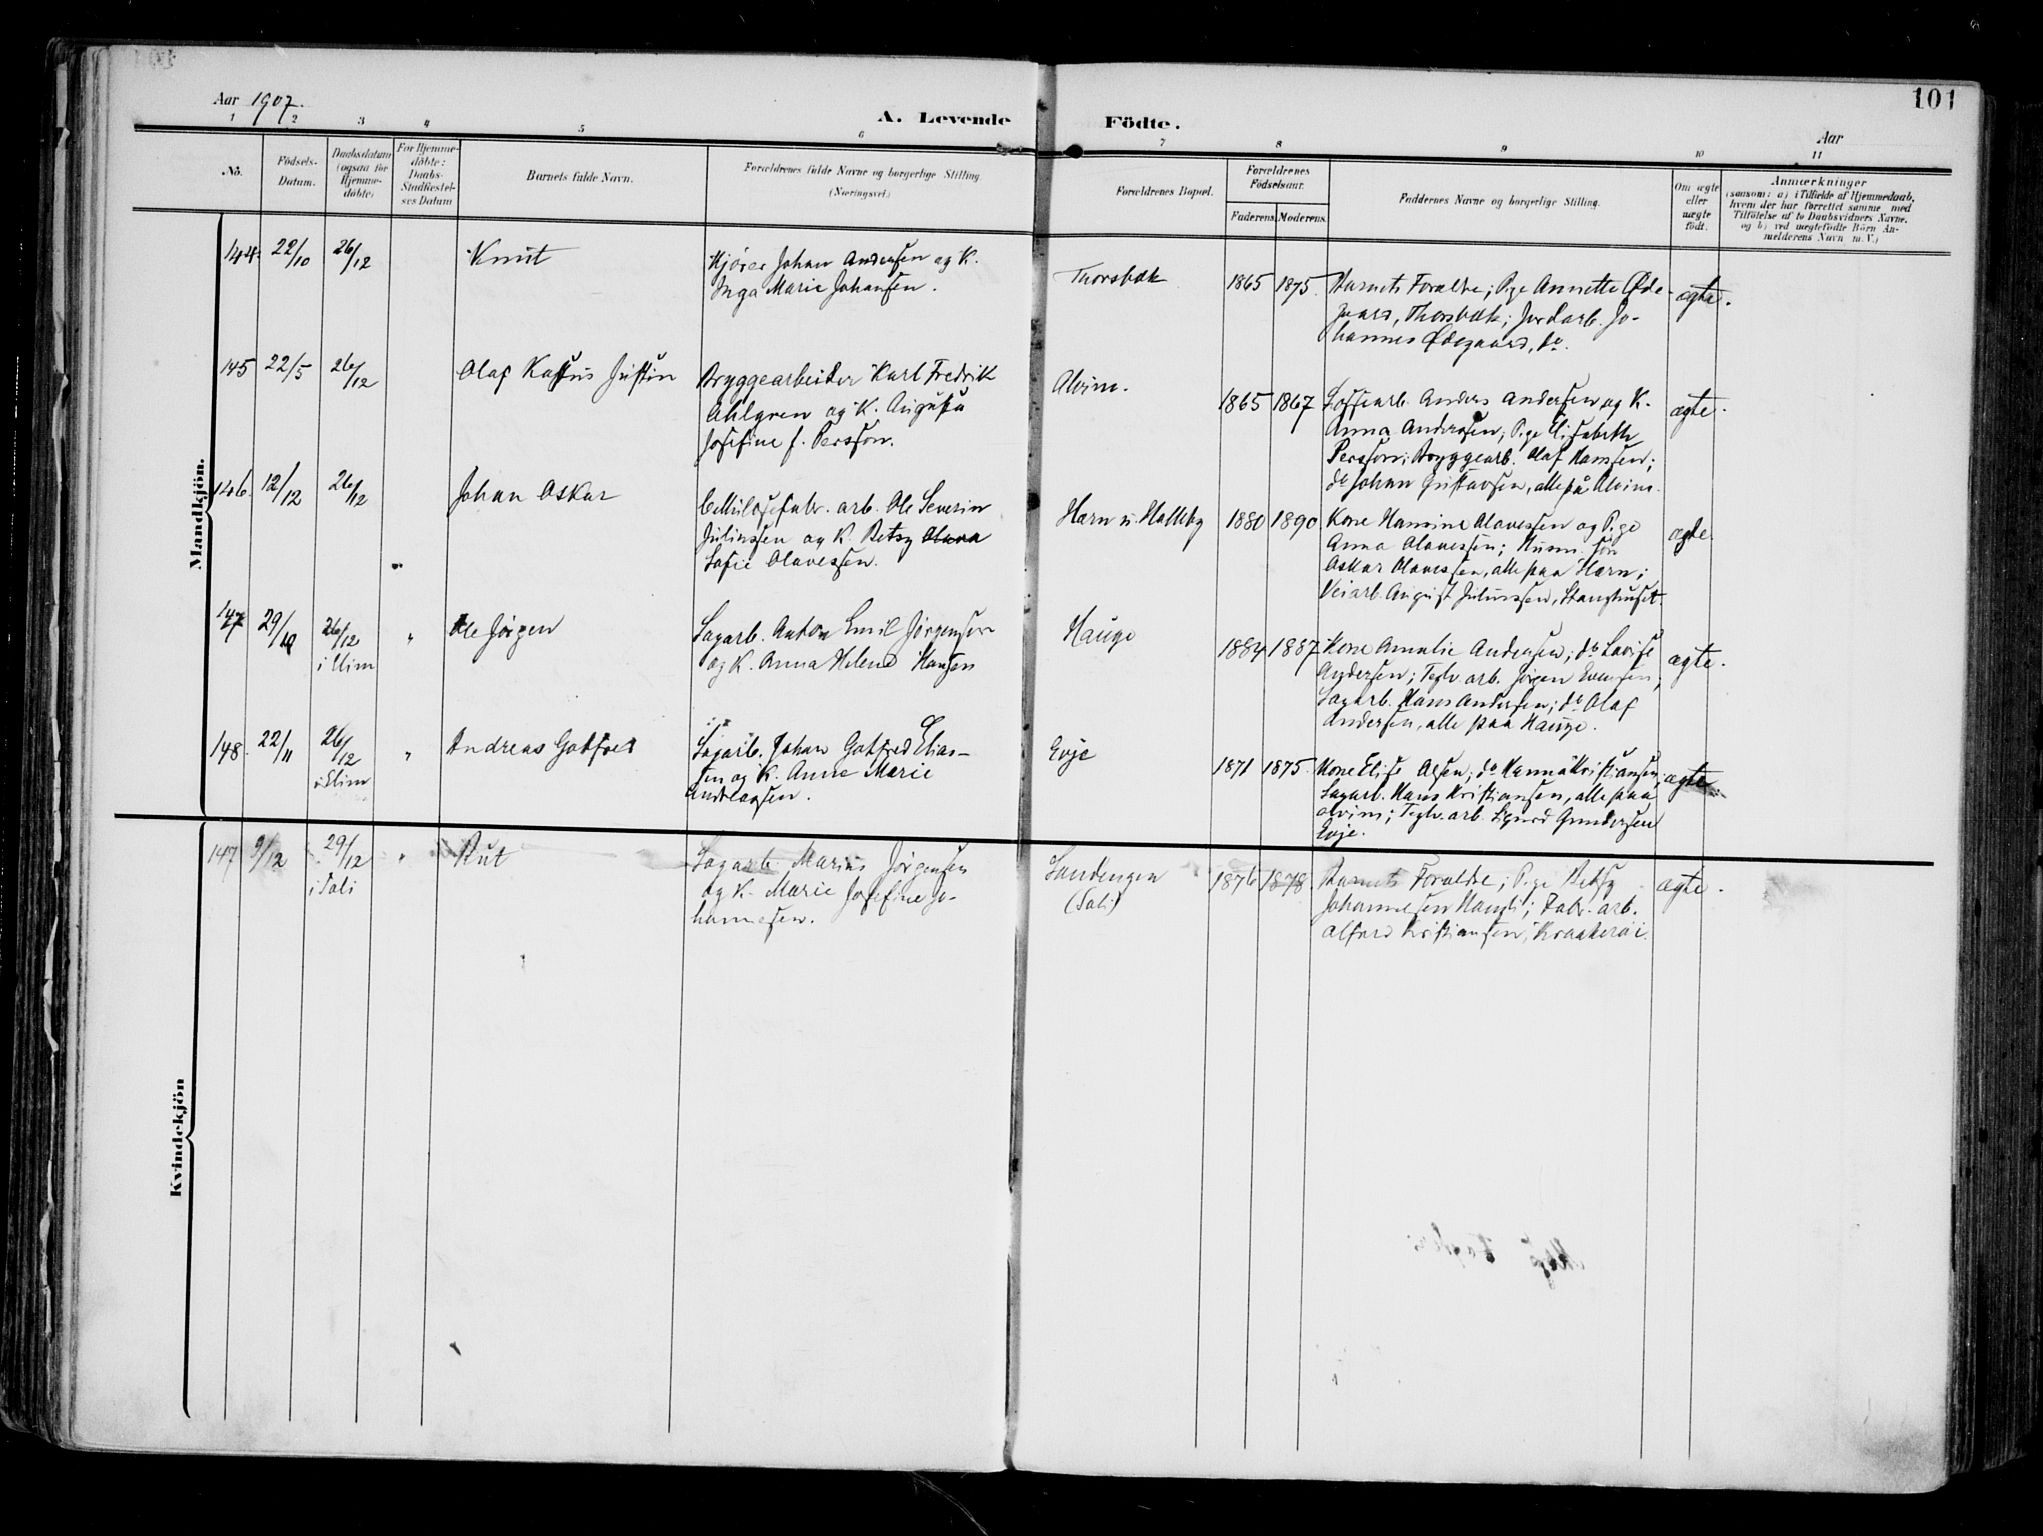 101
Aar 1907.
A. Levende Födte.
Aar
1 2 3 4 5 6 7 8 9 10 11
No.
Födsels-
Datum.
Daabsdatum
(ogsaa for
Hjemme-
döbte)
For Hjemme-
döbte:
Daabs-
Stadfæstel-
ses Datum
Barnets fulde Navn.
Forældrenes fulde Navne og borgerlige Stilling
(Næringsvei.)
Forældrenes Bopæl.
Forældrenes
Födselsaar.
Faderens. Moderens.
Faddernes Navne og borgerlige Stilling.
Om ægte
eller
uægte
födt.
Anmærkninger
(saasom: a) i Tilfælde af Hjemmedaab,
hvem der har forrettet samme med
Tilföielse af to Daabsvidners Navne,
og b) ved uægtefödte Börn An-
melderens Navn m. V.)
Mandkjön.
144. 22/10 26/12 Knut
Kjører Johan Andersen og K.
Inga Marie Johansen.
Thorsbæk 1865 1875.
Barnets Forældre; Pige Annette Øde-
gaard, Thorsbæk; Jordarb. Jo-
hannes Ødegaard, do.
ægte.
145 22/5 26/12 Olaf Kastus Justin
Bryggearbeider Karl Fredrik
Ahlgren og K. Augusta
Josefine f. Persson.
Alvim. 1865 1867
Lossearb. Anders Andersen og K.
Anna Andersen; Pige Elisabeth
Persson; Bryggearb. Olaf Hansen;
do Johan Gustavsen, alle på Alvim.
ægte.
146. 12/12 26/12 Johan Oskar
Cellulosefabr. arb. Ole Severin
Juliussen og K. Betsy Olava
Sofie Olavessen.
Hærn u. Halleby 1880 1890
Kone Hansine Olavessen og Pige
Anna Olavessen; Husm. søn
Oskar Olavessen, alle paa Hærn;
Veiarb. August Juliussen, Stanghuset.
ægte.
147 29/10 26/12 " Ole Jørgen
i Elim
Sagarb. Anton Emil Jørgensen
og K. Anna Helene Hansen
Hauge 1884 1887
Kone Amalie Andersen; do Lovise
Andersen; Teglv. arb. Jørgen Evensen;
Sagarb. Hans Andersen; do Olaf
Andersen, alle paa Hauge.
ægte.
148. 22/11 26/12 " Andreas Gotfred
i Elim
Sagarb. Johan Gotfred Elias-
sen og K. Anne Marie
Andreassen.
Evje 1871 1875.
Kone Elise Olsen; do Hanna Kristiansen;
Sagarb. Hans Kristiansen, alle paa
Alvim; Teglv. arb. Sigurd Gundersen
Evje.
ægte.
Kvindekjön
147 9/12 29/12 " Rut
i Tali
Sagarb. Marius Jørgensen
og K. Marie Josefine Jo-
hannesen.
Sandengen
(Tali)
1876 1878.
Barnets Forældre; Pige Betsy
Johannesen Haugli; Fabr. arb.
Alfred Kristiansen, Kraakerøi.
ægte.